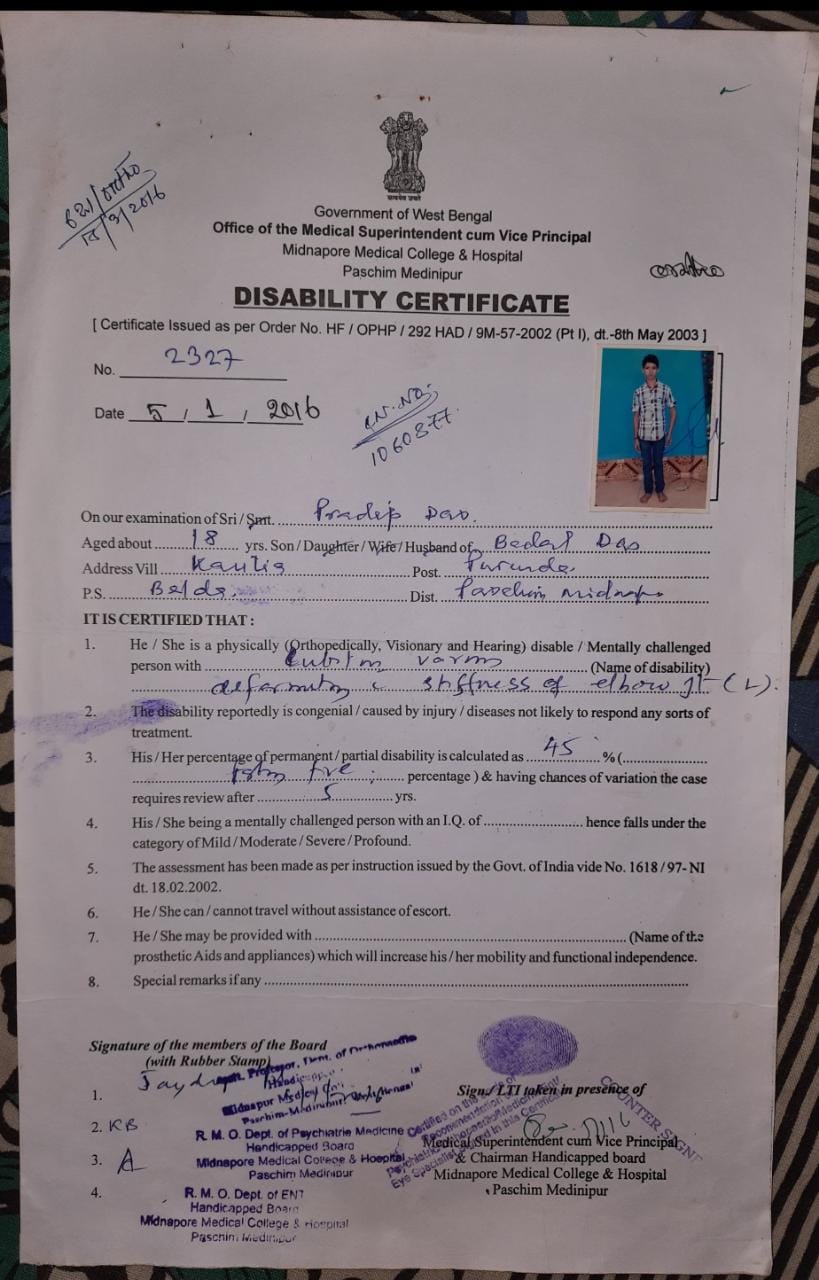 सत्यमेव जयते
Government of West Bengal
Office of the Medical Superintendent cum Vice Principal
Midnapore Medical College & Hospital
Paschim Medinipur
DISABILITY CERTIFICATE
[ Certificate Issued as per Order No. HF / OPHP / 292 HAD / 9M-57-2002 (Pt I), dt.-8th May 2003 ]
No. 2327
Date 5 / 1 / 2016
1060877
On our examination of Sri / Smt. Pradip Das.
Aged about 18 yrs. Son / Daughter / Wife / Husband of Das
Address Vill Post.
P.S. Belda. Dist. Paschim
IT IS CERTIFIED THAT :
1. He / She is a physically (Orthopedically, Visionary and Hearing) disable / Mentally challenged
person with Cubitus varus (Name of disability)
deformity c stiffness of elbow jt (L).
2. The disability reportedly is congenial / caused by injury / diseases not likely to respond any sorts of
treatment.
3. His / Her percentage of permanent / partial disability is calculated as 45 % (
five percentage ) & having chances of variation the case
requires review after 5 yrs.
4. His / She being a mentally challenged person with an I.Q. of hence falls under the
category of Mild / Moderate / Severe / Profound.
5. The assessment has been made as per instruction issued by the Govt. of India vide No. 1618 / 97- NI
dt. 18.02.2002.
6. He / She can / cannot travel without assistance of escort.
7. He / She may be provided with (Name of the
prosthetic Aids and appliances) which will increase his / her mobility and functional independence.
8. Special remarks if any
Signature of the members of the Board
(with Rubber Stamp)
1.
2. KB
R. M. O. Dept. of Psychiatric Medicine
Handicapped Board
Midnapore Medical College & Hospital
Paschim Medinipur
3.
4.
R. M. O. Dept. of ENT
Handicapped Board
Midnapore Medical College & Hospital
Paschim Medinipur
Sign./ LTI taken in presence of
COUNTER SIGN
Medical Superintendent cum Vice Principal
& Chairman Handicapped board
Midnapore Medical College & Hospital
Paschim Medinipur